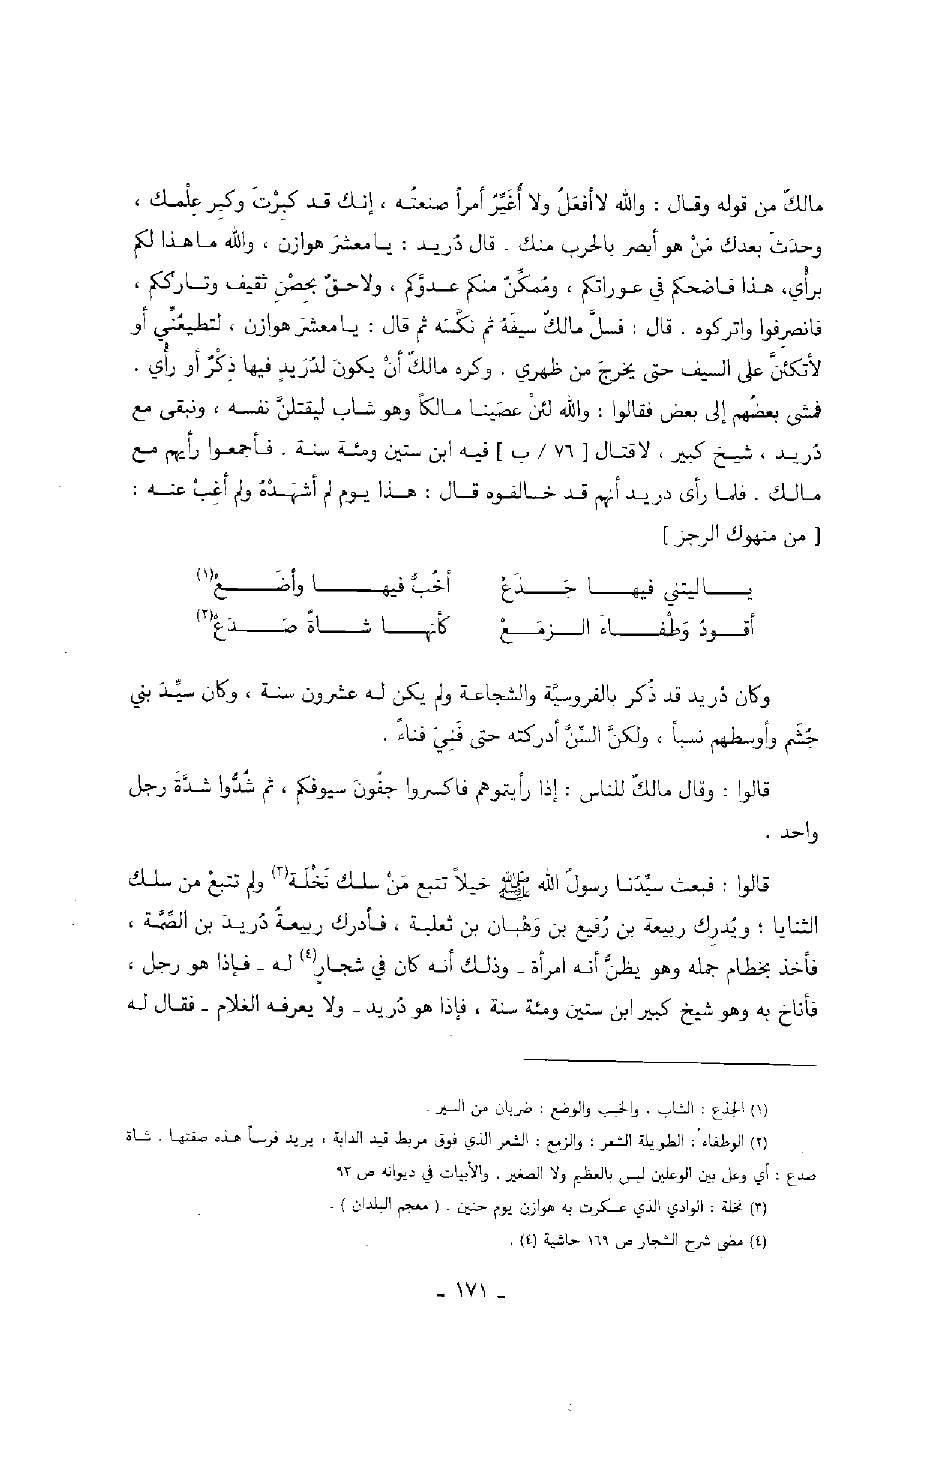 مالكٌ من قوله وقال : والله لا أفعلُ ولا أُغَيِّرُ أمراً صنعتُه ، إنك قد كبِرْتَ وكبِر عِلْمك ،
وحدَث بعدك مَنْ هو أبصر بالحرب منك . قال دُريد : يامعشرَ هوازن ، والله ماهذا لكم
برأي، هذا فاضحكم في عوراتكم ، ومُمكِّنٌ منكم عدوَّكم ، ولاحقٌ بحِصْنِ ثقيف وتارككم ،
فانصرفوا واتركوه . قال : فسلَّ مالكٌ سيفَهُ ثم نكَّسَه ثم قال : يامعشرَ هوازن ، لتطيعُنِّي أو
لأتكئنَّ على السيف حتى يخرجَ من ظهري . وكره مالكٌ أنْ يكونَ لدُرَيدٍ فيها ذِكْرٌ أو رأي .
فمشى بعضُهم إلى بعض فقالوا : والله لئنْ عصَينا مالكاً وهو شاب ليقتلنَّ نفسه ، ونبقى مع
دُريد ، شيخ كبير ، لاقتال [ ٧٦ / ب ] فيه ابن ستين ومئة سنة . فأجمعوا رأيهم مع
مالك . فلما رأى دريد أنهم قد خالفوه قال : هذا يوم لم أَشْهَدْهُ ولم أغِبْ عنه :
[ من منهوك الرجز ]
ياليتني فيها جَذَعْ أخُبُّ فيها وأضَعْ(١)
أقودُ وَطْفاءَ الزمَعْ كأنها شاةٌ صَدَعْ(٢)
وكان دُريد قد ذُكر بالفروسيَّة والشجاعة ولم يكن له عشرون سنة ، وكان سيِّدَ بني
جُشَم وأوسطهم نسباً ، ولكنَّ السِّنَّ أدركته حتى فَنِيَ فناءً .
قالوا : وقال مالكٌ للناس : إذا رأيتموهم فاكسروا جفُونَ سيوفكم ، ثم شُدُّوا شدَّةَ رجل
واحد .
قالوا : فبعث سيِّدُنا رسولُ الله ﷺ خيلاً تتبع مَنْ سلك نَخْلَة(٣) ولم تتبعْ من سلك
الثنايا ؛ ويُدرك ربيعة بن رُفَيع بن وَهْبان بن ثعلبة ، فأدرك ربيعةُ دُريدَ بن الصِّمَّة ،
فأخذ بخطام جمله وهو يظنُّ أنه امرأة ـ وذلك أنه كان في شجارٍ(٤) له ـ فإذا هو رجل ،
فأناخ به وهو شيخ كبير ابن ستين ومئة سنة ، فإذا هو دُريد ـ ولا يعرفه الغلام ـ فقال له
(١) الجذع : الشاب . والخبب والوضع : ضربان من السير .
(٢) الوطفاء : الطويلة الشعر ؛ والزمع : الشعر الذي فوق مربط قيد الدابة ، يريد فرساً هذه صفتها . شاة
صدع : أي وعل بين الوعلين ليس بالعظيم ولا الصغير . والأبيات في ديوانه ص ٩٣
(٣) نخلة : الوادي الذي عسكرت به هوازن يوم حنين . ( معجم البلدان ) .
(٤) مضى شرح الشجار ص ١٦٩ حاشية (٤) .
ـ ١٧١ ـ